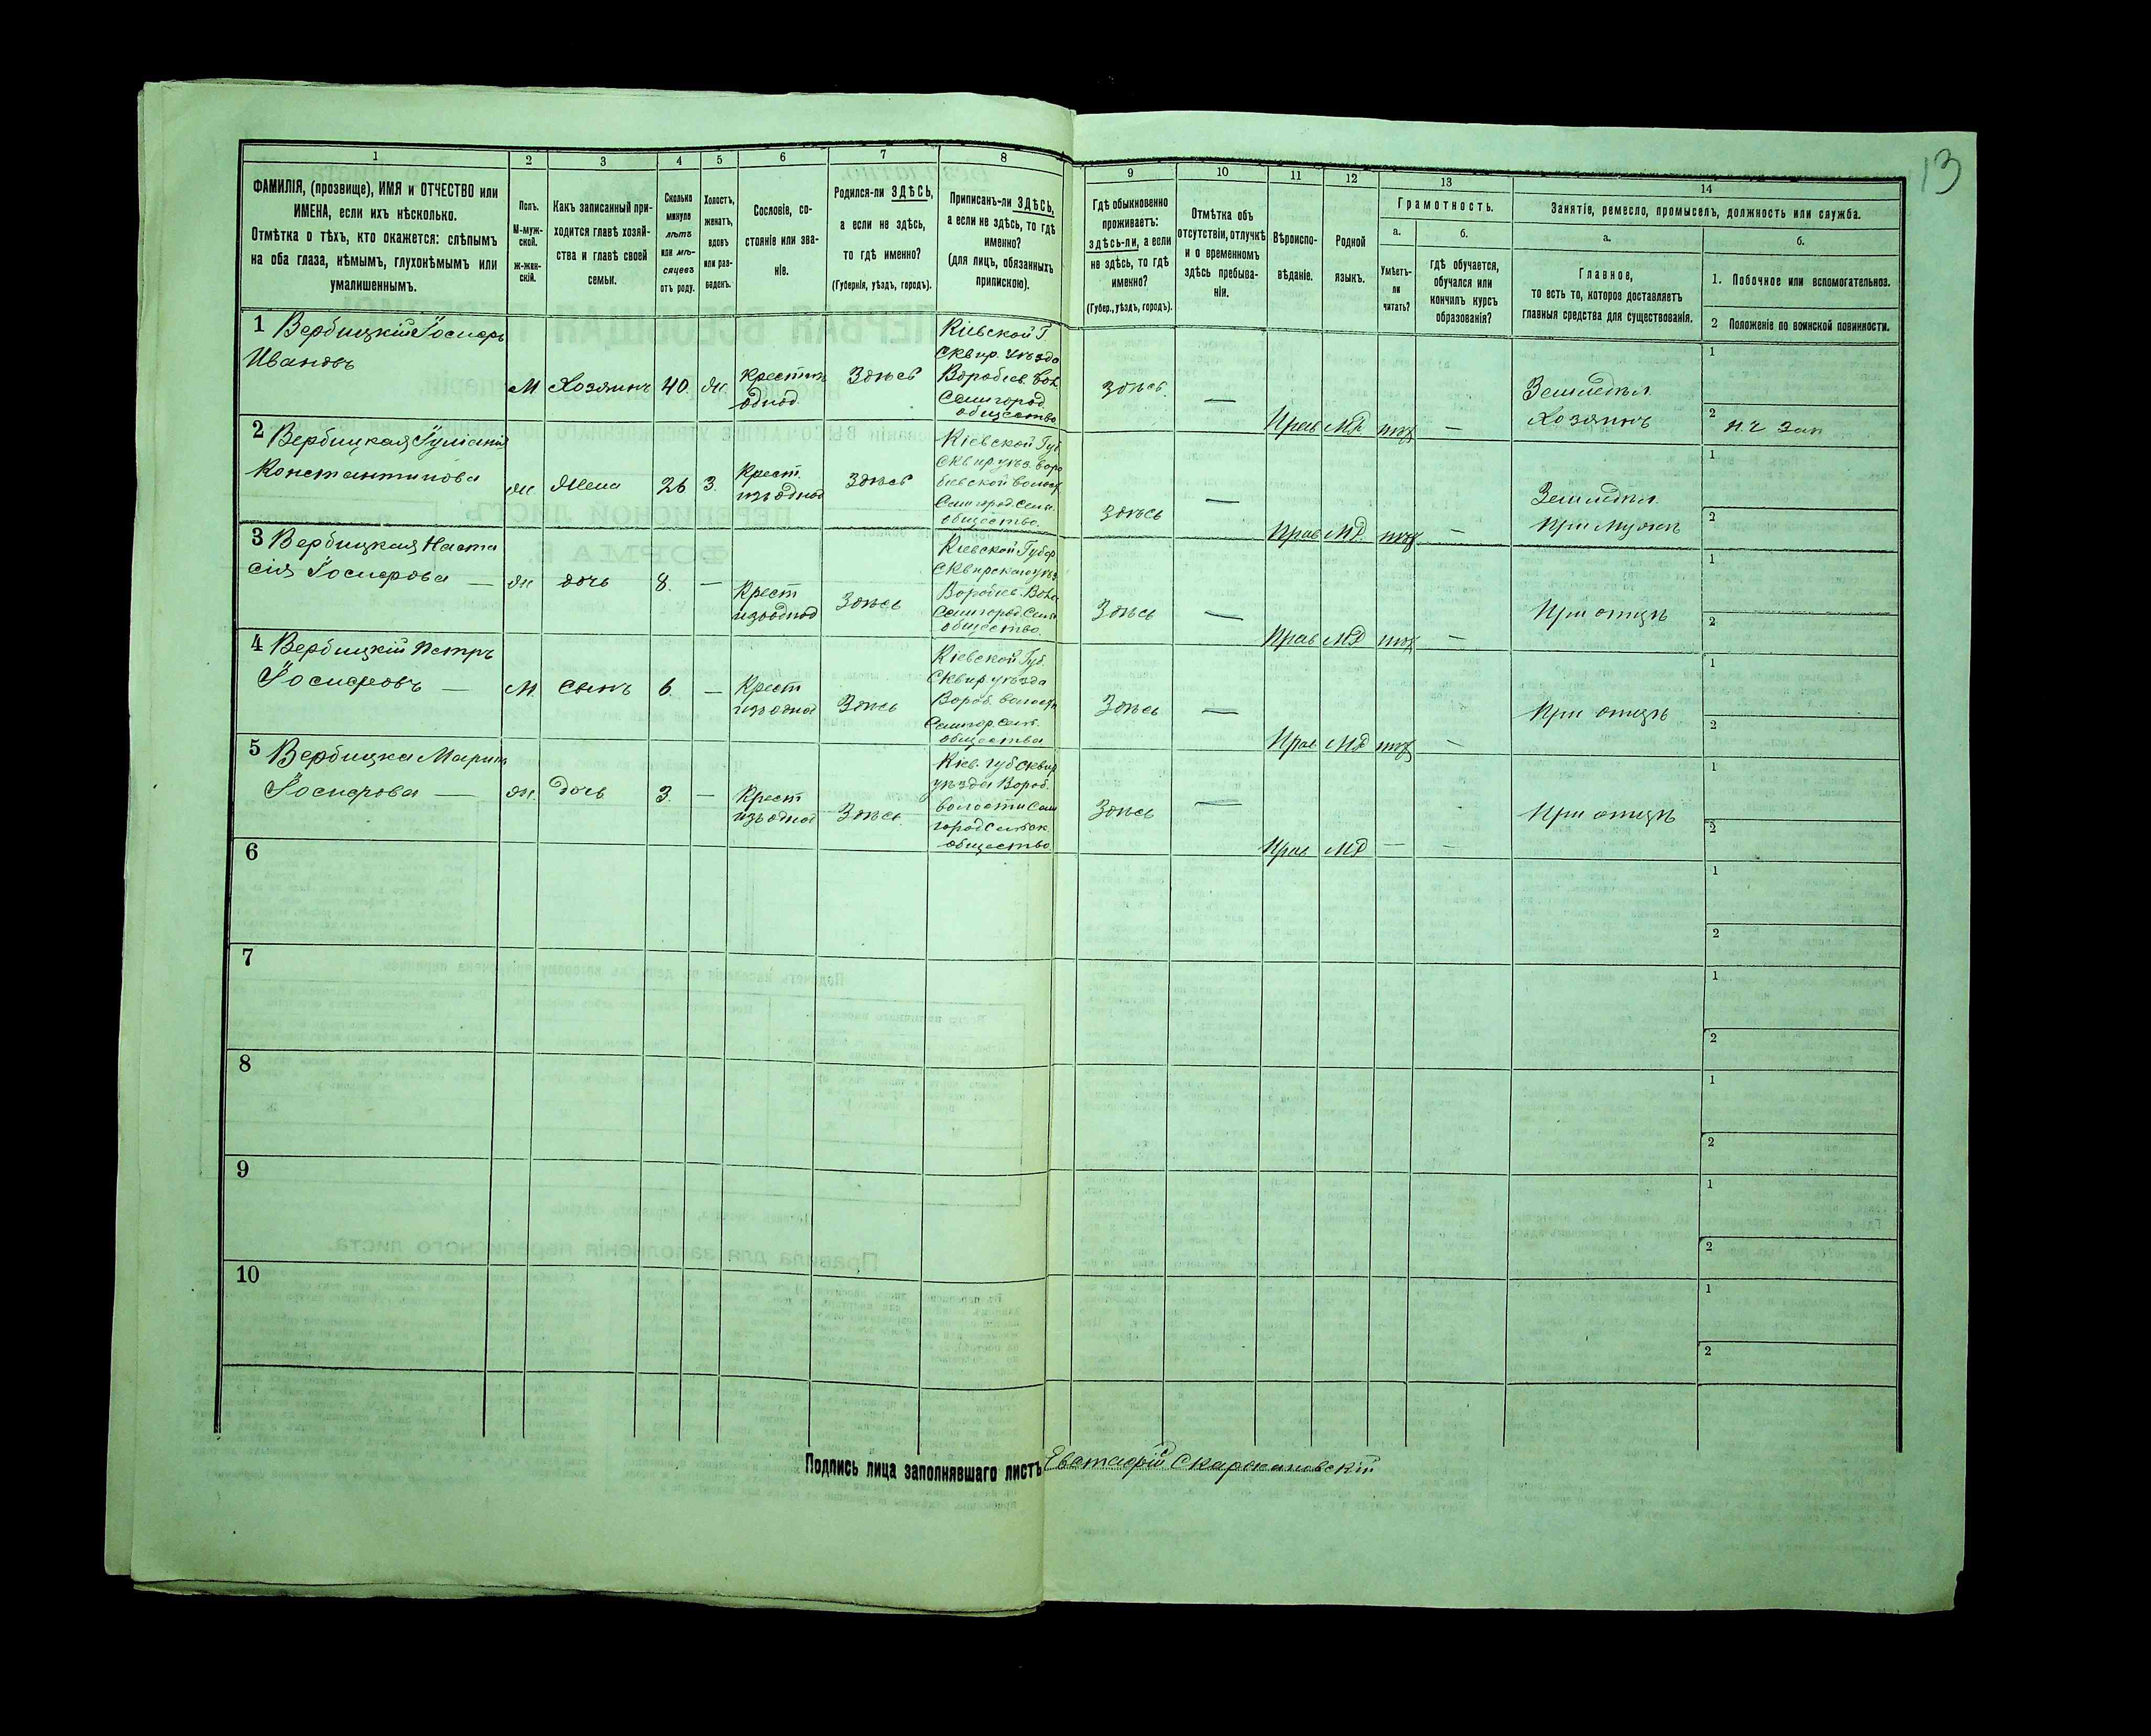 13
1
2
3
4
5
6
7
8
9
10
11
12
13
14
ФАМИЛІЯ, (прозвище), ИМЯ и ОТЧЕСТВО или
ИМЕНА, если ихъ нѣсколько.
Отмѣтка о тѣхъ, кто окажется: слѣпымъ
на оба глаза, нѣмымъ, глухонѣмымъ или
умалишеннымъ.
Полъ.
М-муж-
ской.
ж-жен-
скій.
Какъ записанный при-
ходится главѣ хозяй-
ства и главѣ своей
семьи.
Сколько
минуло
лѣтъ
или мѣ-
сяцевъ
отъ роду.
Холостъ,
женатъ,
вдовъ
или раз-
веденъ.
Сословіе, со-
стояніе или зва-
ніе.
Родился-ли ЗДѢСЬ,
а если не здѣсь,
то гдѣ именно?
(Губернія, уѣздъ, городъ).
Приписанъ-ли ЗДѢСЬ,
а если не здѣсь, то гдѣ
именно?
(для лицъ, обязанныхъ
припискою).
Гдѣ обыкновенно
проживаетъ:
здѣсь-ли, а если
не здѣсь, то гдѣ
именно?
(Губер., уѣздъ, городъ).
Отмѣтка объ
отсутствіи, отлучкѣ
и о временномъ
здѣсь пребыва-
ніи.
Вѣроиспо-
вѣданіе.
Родной
языкъ.
Грамотность.
а.
Умѣетъ-
ли
читать?
б.
гдѣ обучается,
обучался или
кончилъ курсъ
образованія?
Занятіе, ремесло, промыселъ, должность или служба.
а.
Главное,
то есть то, которое доставляетъ
главныя средства для существованія.
б.
1. Побочное или вспомогательное.
2 Положеніе по воинской повинности.
1 Вербицкій Іосифъ
Ивановъ
М Хозяинъ 40. Ж.
Крестин
однод.
Здѣсь
Кіевской Г.
Сквир. уѣзда
Воробіев. Вол.
Семигород.
общество
Здѣсь. — Прав МР —
Земледѣл.
Хозяинъ
1
2
2 Вербицкая
Константинова
Ж Жена 26 З.
Крест.
изъ однод
Здѣсь
Кіевской Губ.
Сквир уѣз. Воро
біевской волос
общество.
Здѣсь — Прав МР. —
Земледѣл.
При мужѣ
1
2
3 Вербицкая Наста
сія Іосифова —
Ж дочь 8. —
Крест
изъ однод
Здѣсь
Кіевской Губер.
Сквирскаго уѣз
Воробіев. Вол.
Семигород. Сель
общество.
Здѣсь — Прав МР —
При отцѣ
1
2
4 Вербицкій Петръ
Іосифовъ —
М. сынъ 6. —
Крест
изъ однод
Здѣсь
Кіевской Губ.
Сквир уѣзда
Вороб. волости
общества
Здѣсь — Прав МР —
При отцѣ
1
2
5 Вербицка Марина
Іосифова —
Ж. Дочь 3. —
Крест
изъ однод
Здѣсь.
Кіев. губ Сквир
уѣзда Вороб.
волости Семи
город сельск.
общество
Здѣсь — Прав МР — —
При отцѣ
1
2
6
1
2
7
1
2
8
1
2
9
1
2
10
1
2
Подпись лица заполнявшаго листъ